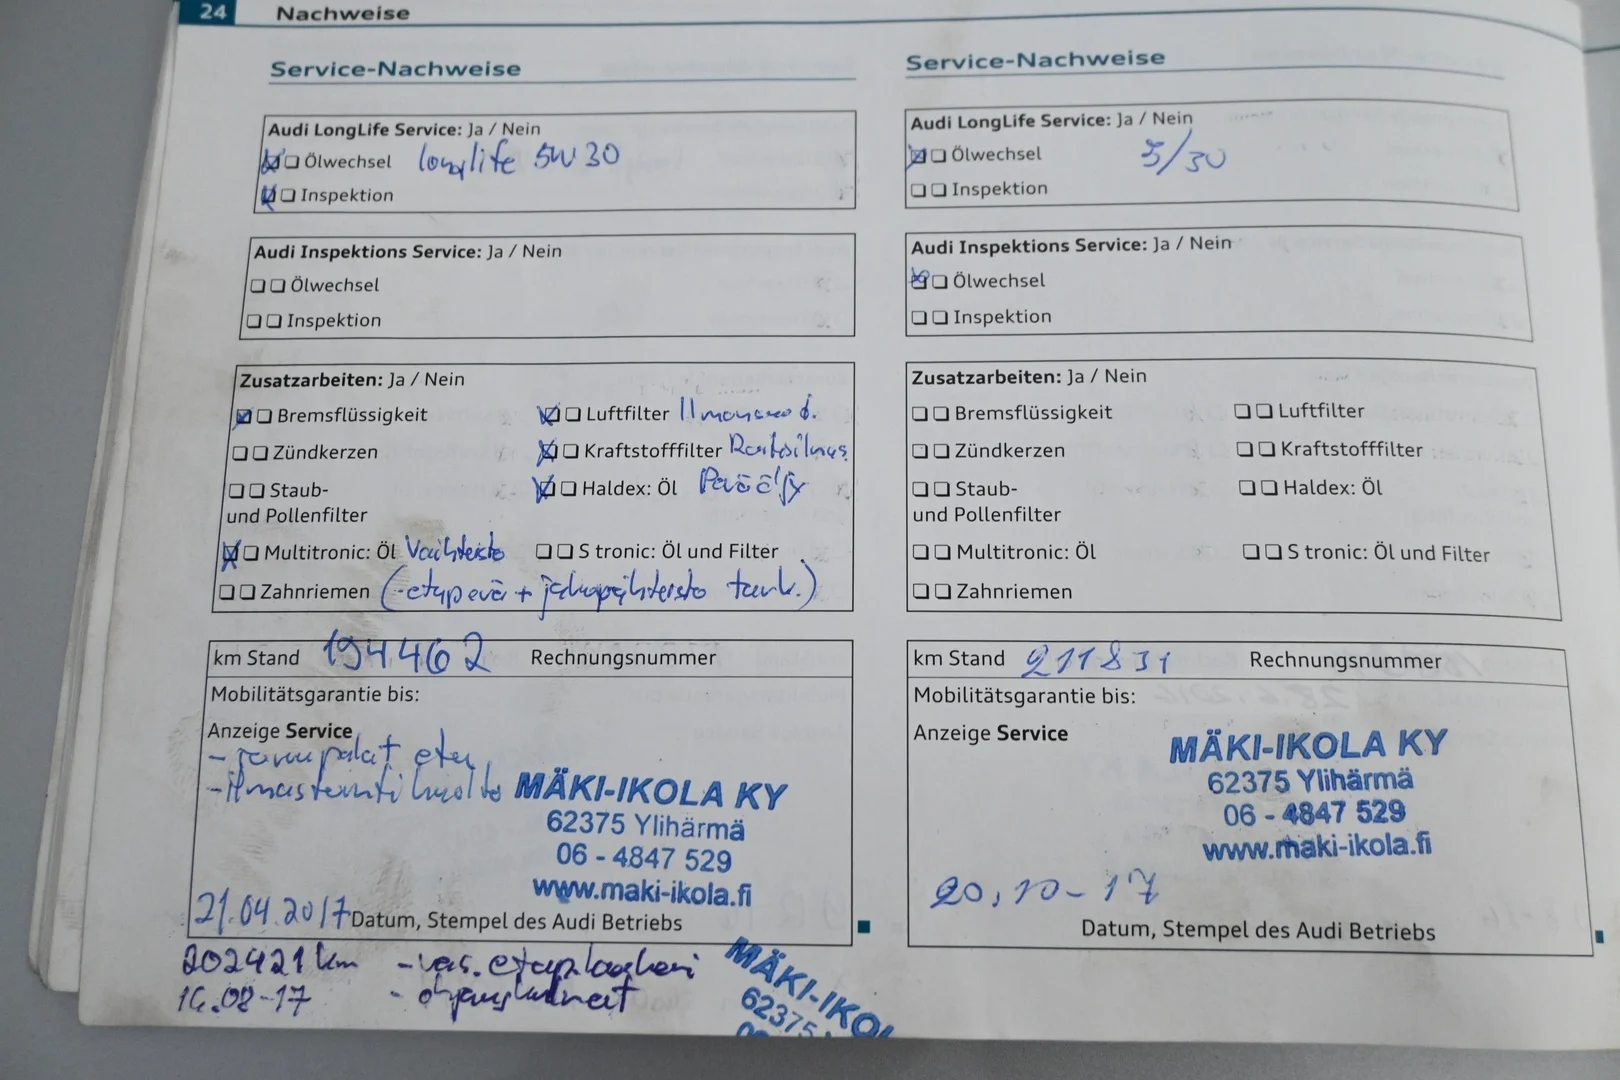 24 Nachweise
Service-Nachweise
Audi LongLife Service: Ja / Nein
Ölwechsel longlife 5W30
Inspektion
Audi Inspektions Service: Ja / Nein
Ölwechsel
Inspektion
Zusatzarbeiten: Ja / Nein
Bremsflüssigkeit
Luftfilter
Zündkerzen
Kraftstofffilter
Staub-
und Pollenfilter
Haldex: Öl
Multitronic: Öl Vaihteisto
S tronic: Öl und Filter
Zahnriemen (-etuperä + jakopäihteisto tark.)
km Stand 194462 Rechnungsnummer
Mobilitätsgarantie bis:
Anzeige Service
- jarrupalat etu
MÄKI-IKOLA KY
62375 Ylihärmä
06 - 4847 529
www.maki-ikola.fi
21.04.2017 Datum, Stempel des Audi Betriebs
202421 km - vas. etup.laakeri
16.08-17
MÄKI-IKOL
62375
Service-Nachweise
Audi LongLife Service: Ja / Nein
Ölwechsel 5/30
Inspektion
Audi Inspektions Service: Ja / Nein
Ölwechsel
Inspektion
Zusatzarbeiten: Ja / Nein
Bremsflüssigkeit
Luftfilter
Zündkerzen
Kraftstofffilter
Staub-
und Pollenfilter
Haldex: Öl
Multitronic: Öl
S tronic: Öl und Filter
Zahnriemen
km Stand 211831 Rechnungsnummer
Mobilitätsgarantie bis:
Anzeige Service
MÄKI-IKOLA KY
62375 Ylihärmä
06 - 4847 529
www.maki-ikola.fi
20.10-17
Datum, Stempel des Audi Betriebs